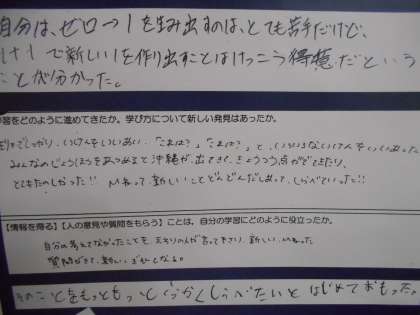 自分は、ゼロ→1を生み出すのは、とても苦手だけど、
1+1で新しい1を作り出すことはけっこう得意だという
ことが分かった。
学習をどのように進めてきたか。学び方について新しい発見はあったか。
しっかり、いけんをいいあい、「これは？」「これは？」と、いろいろないけんをいいあった
みんなのじょうほうをあつめると沖縄が、出てきて、きょうつう点がでてきたり、
とてもたのしかった!! 新しいことどんどんだしあって、しらべていった!!
【情報を得る】【人の意見や質問をもらう】ことは、自分の学習にどのように役立ったか。
自分の考えてなかったことを、言ってきたり、新しい
質問ができて、
そのことをもっともっとくわしくしらべたいとはじめておもった。